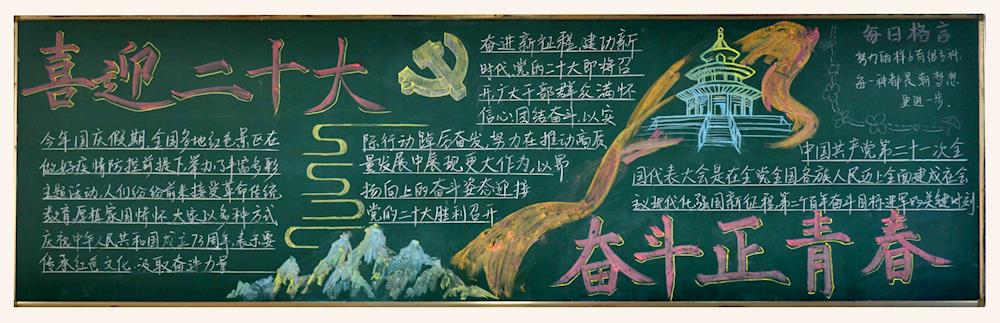 喜迎二十大
今年国庆假期,全国多地红色景区在
做好疫情防控前提下举办了丰富多彩
主题活动,人们纷纷前来接受革命传统
教育厚植家国情怀大家以各种方式
庆祝中华人民共和国成立73周年,表示要
传承红色文化、汲取奋进力量
奋进新征程,建功新
时代,党的二十大即将召
开,广大干部群众满怀
信心:团结奋斗,以实
际行动踔厉奋发,努力在推动高质
量发展中展现更大作为,以昂
扬向上的奋斗姿态迎接
党的二十大胜利召开
每日格言
努力的样子有很多种,
每一种都是朝梦想
更进一步.
中国共产党第二十一次全
国代表大会是在全党全国各族人民迈上全面建成社会
现代化强国新征程,第二个百年奋斗目标进军的关键时刻
奋斗正青春